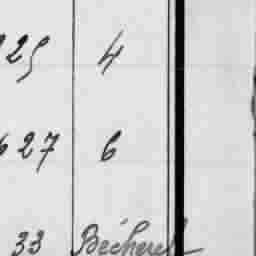 25 4
627 6
33 Becherel